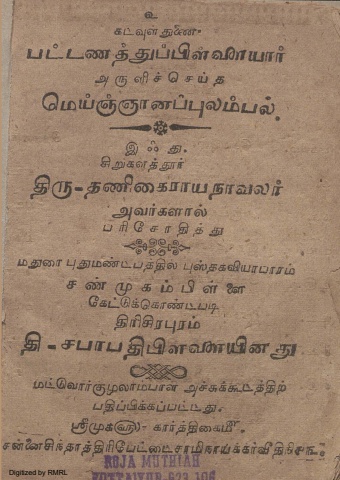 உ
கடவுள் துணை.
பட்டணத்துப்பிள்ளையார்
அருளிச்செய்த
மெய்ஞ்ஞானப்புலம்பல்.
இஃது.
சிறுகளத்தூர்
திரு-தணிகைராயநாவலர்
அவர்களால்
பரிசோதித்து
மதுரை புதுமண்டபத்தில் புஸ்தகவியாபாரம்
சண்முகம்பிள்ளை
கேட்டுக்கொண்டபடி
திரிசிரபுரம்
தி-சபாபதிபிள்ளையினது
மட்டுவார்குழலாம்பாள் அச்சுக்கூடத்திற்
பதிப்பிக்கப்பட்டது.
ஸ்ரீமுகளு-கார்த்திகைமீ
சென்னைசிந்தாத்திரிபேட்டை சாமிநாயக்கர்வீதி
Digitized by RMRL
ROJA MUTHIAH
KOTTAIYUR-623 106